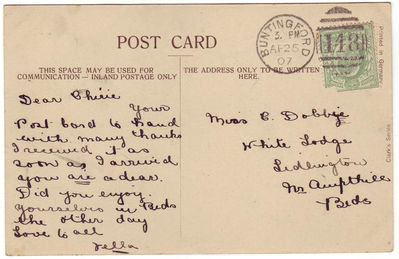 POST CARD
THIS SPACE MAY BE USED FOR
COMMUNICATION — INLAND POSTAGE ONLY
THE ADDRESS ONLY TO BE WRITTEN
HERE
BUNTINGFORD
3. PM
AP 25
07
148
Printed in Germany.
Clark's Series
Dear
Your
Post Card to hand
with many thanks
I received it as
soon as I arrived
you are a dear.
Did you enjoy
yourselves in Beds
the other day
Love to all
Miss C. Dobbie
White Lodge
Lidlington
Nr Ampthill
Beds